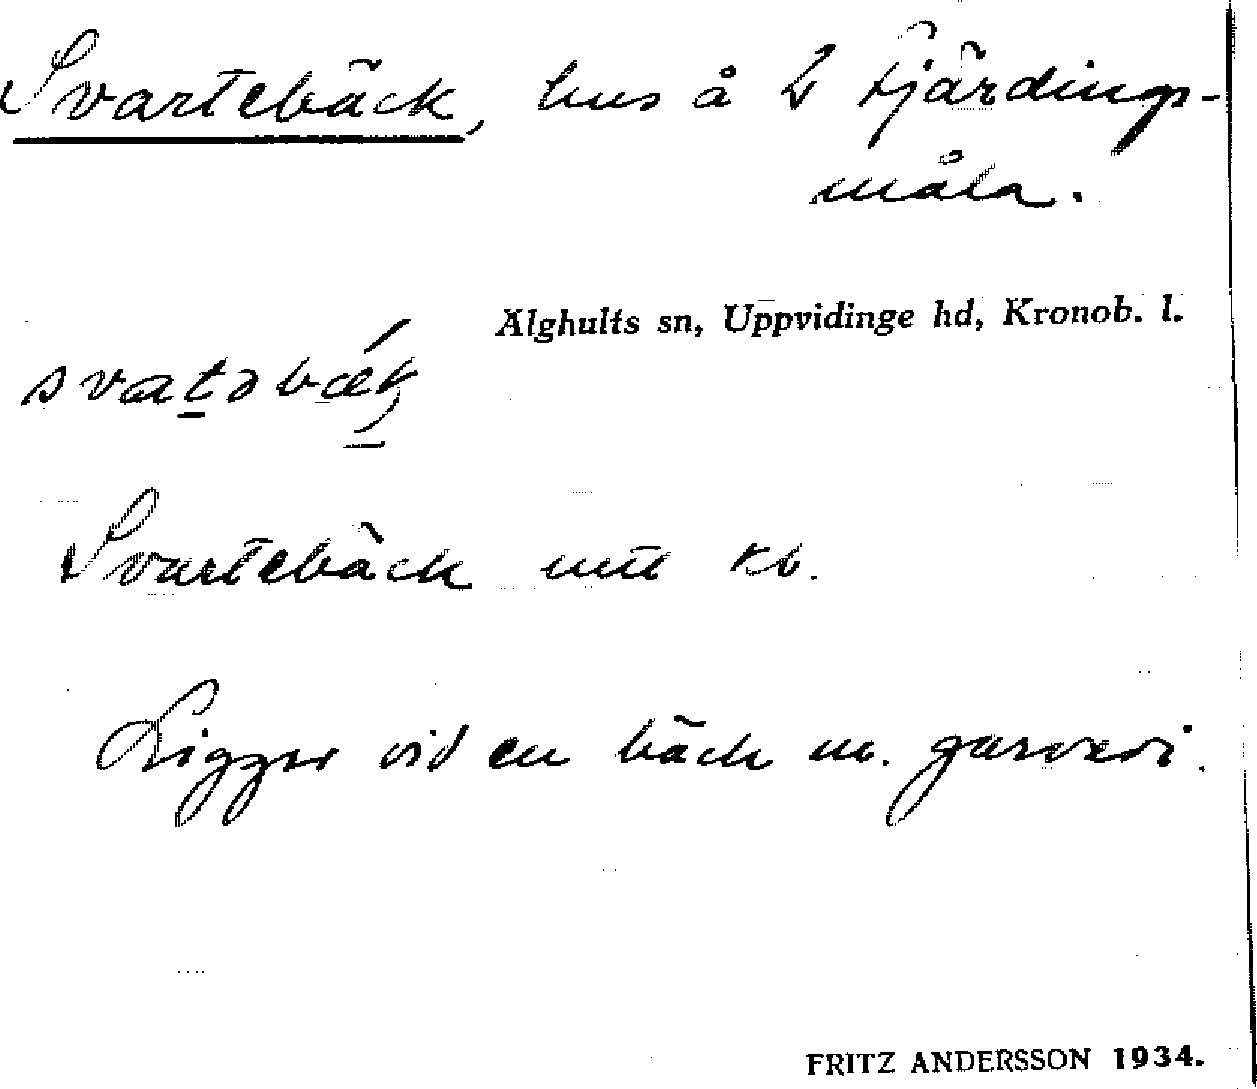 Svartebäck, hus å 2 Fjärdings-
måla.
Älghults sn, Uppvidinge hd, Kronob. l.
Svartebäck utt kb.
Ligger vid en bäck m. garveri.
FRITZ ANDERSSON 1934.